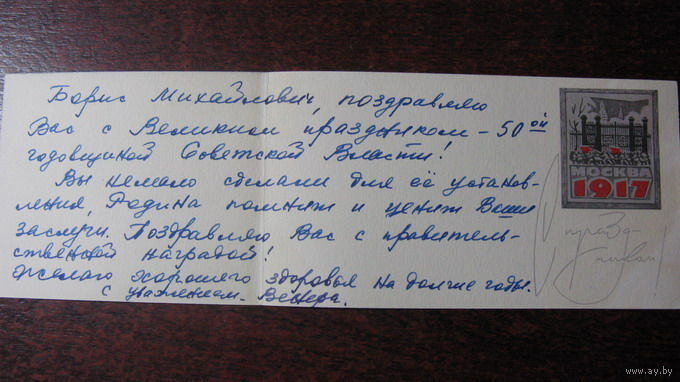 Борис Михайлович, поздравляю
Вас с Великим праздником - 50ой
годовщиной Советской Власти!
Вы немало сделали для её установ-
ления, Родина помнит и ценит Ваши
заслуги. Поздравляю Вас с правитель-
ственной наградой!
Желаю хорошего здоровья на долгие годы.
с уважением - Венера.
МОСКВА
1917
С празд-
ником!
www.ay.by